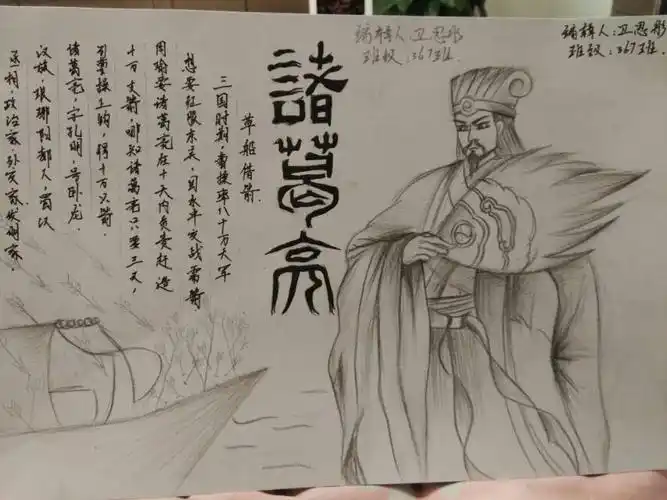 编辑人:卫恩彤
班级:367班.
编辑人 卫恩彤
班级:367班.
諸葛亮
草船借箭.
三国时期,曹操率八十万大军
想要征服东吴,因水平交战需箭
周瑜要诸葛亮在十天内负责赶造
十万支箭,哪知诸葛亮只要三天,
引曹操上钩,得十万只箭.
诸葛亮,字孔明,号卧龙.
汉族,琅琊阳都人,蜀汉
丞相,政治家,外交家发明家.